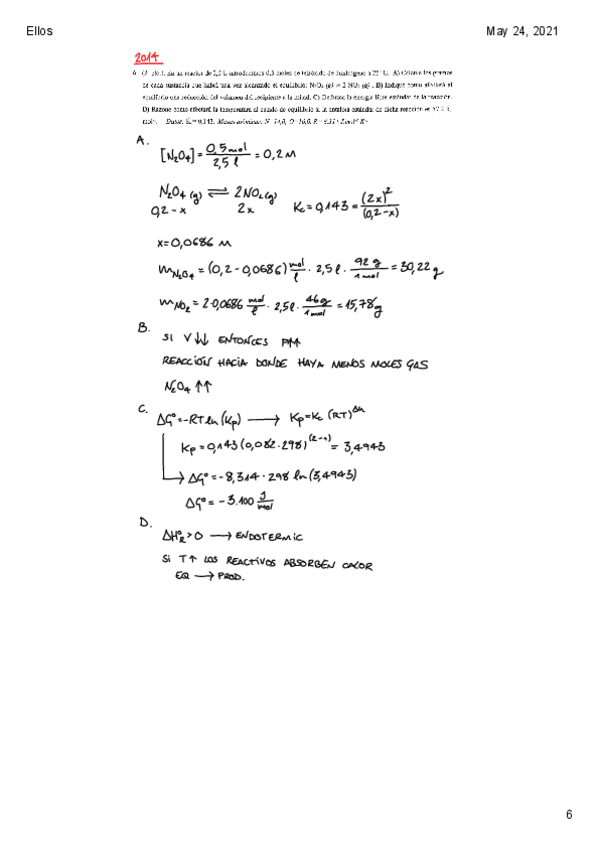 Ellos
May 24, 2021
2014
en un reactor de 2,5 L introducimos 0,5 moles de tetróxido de dinitrógeno a 25 A) Calcule los gramos
de cada sustancia que habrá una vez alcanzado el equilibrio: N₂O₄ (g) ⇌ 2 NO₂ (g). B) Indique como afectará al
equilibrio una reducción del volumen del recipiente a la mitad. C) Determine la energía libre estándar de la reacción.
D) Razone como afectará la temperatura al estado de equilibrio si la entalpía estándar de dicha reacción es 57,2 k
Datos: Kc = 0,143. Masas atómicas: N=14,0; O=16,0. R= 8,31
A.
[N₂O₄] = 0,5 mol / 2,5 l = 0,2 M
N₂O₄ (g) ⇌ 2NO₂ (g)
0,2 - x 2x Kc = 0,143 = (2x)² / (0,2-x)
x = 0,0686 M
m N₂O₄ = (0,2 - 0,0686) mol/l · 2,5 l · 92 g / 1 mol = 30,22 g
m NO₂ = 2·0,0686 mol/l · 2,5 l · 46g / 1 mol = 15,78 g
B.
SI V ↓↓ ENTONCES P↑↑
REACCIÓN HACIA DONDE HAYA MENOS MOLES GAS
N₂O₄ ↑↑
C.
ΔG° = -RT ln (Kp) → Kp = Kc (RT)^Δn
Kp = 0,143 (0,082 · 298)^(2-1) = 3,4943
↳ ΔG° = -8,314 · 298 ln (3,4943)
ΔG° = -3.100 J/mol
D.
ΔH°R > 0 → ENDOTERMIC
SI T↑ LOS REACTIVOS ABSORBEN CALOR
EQ → PROD.
6